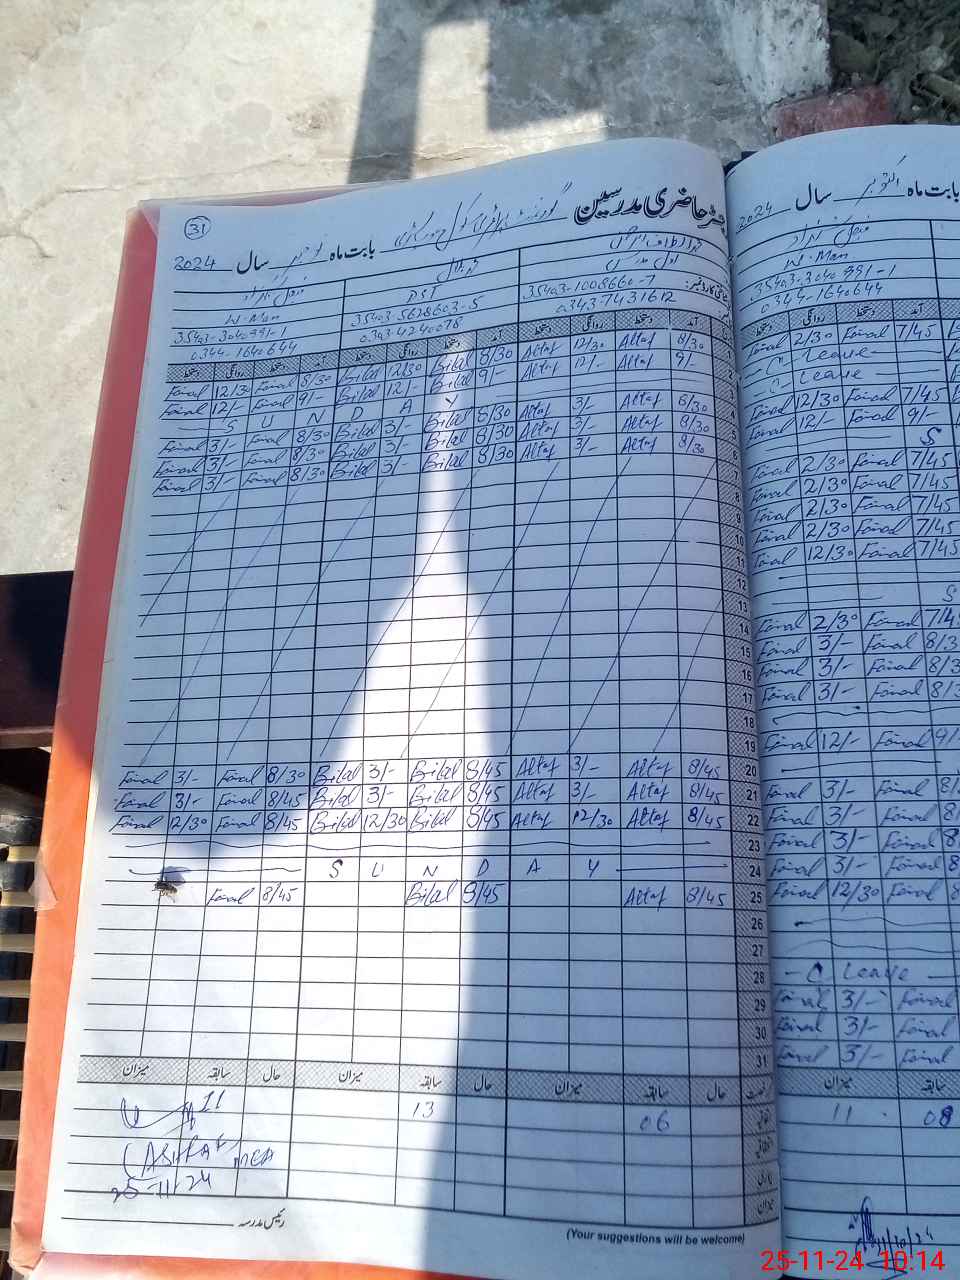 31
رجسٹر حاضری مدرسین
بابت ماہ نومبر سال 2024
محمد بلال
W. Man PST
35403-3040991-1 35403-5628603-5 35403-1008660-7
0344-1640644 0343-4240078 0343-7431612
دستخط روانگی دستخط آمد دستخط روانگی دستخط آمد دستخط روانگی دستخط آمد
Faisal 12/30 Faisal 8/30 Bilal 12/30 Bilal 8/30 Altaf 12/30 Altaf 8/30 1
Faisal 12/- Faisal 9/- Bilal 12/- Bilal 9/- Altaf 12/- Altaf 9/-
S U N D A Y
Faisal 3/- Faisal 8/30 Bilal 3/- Bilal 8/30 Altaf 3/- Altaf 8/30 4
Faisal 3/- Faisal 8/30 Bilal 3/- Bilal 8/30 Altaf 3/- Altaf 8/30 5
Faisal 3/- Faisal 8/30 Bilal 3/- Bilal 8/30 Altaf 3/- Altaf 8/30 6
7
8
9
10
11
12
13
14
15
16
17
18
19
Faisal 3/- Faisal 8/30 Bilal 3/- Bilal 8/45 Altaf 3/- Altaf 8/45 20
Faisal 3/- Faisal 8/45 Bilal 3/- Bilal 8/45 Altaf 3/- Altaf 8/45 21
Faisal 12/30 Faisal 8/45 Bilal 12/30 Bilal 8/45 Altaf 12/30 Altaf 8/45 22
23
S U N D A Y 24
Faisal 8/45 Bilal 8/45 Altaf 8/45 25
26
27
28
29
30
31
میزان سابقہ حال میزان سابقہ حال میزان سابقہ حال
11 13 06
(ASHRAF MEA
25-11-24
رئیس مدرسہ
(Your suggestions will be welcome)
بابت ماہ اکتوبر سال 2024
W. Man
35403-3040991-1
0344-1640644
دستخط روانگی دستخط آمد
Faisal 2/30 Faisal 7/45
C Leave
C Leave
Faisal 12/30 Faisal 7/45
Faisal 12/- Faisal 9/-
S
Faisal 2/30 Faisal 7/45
Faisal 2/30 Faisal 7/45
Faisal 2/30 Faisal 7/45
Faisal 2/30 Faisal 7/45
Faisal 12/30 Faisal 7/45
S
Faisal 2/30 Faisal 7/4
Faisal 3/- Faisal 8/3
Faisal 3/- Faisal 8/3
Faisal 3/- Faisal 8/3
Faisal 12/- Faisal 9/
Faisal 3/- Faisal 8/
Faisal 3/- Faisal 8/
Faisal 3/- Faisal 8
Faisal 3/- Faisal 8
Faisal 12/30 Faisal 8
C Leave
Faisal 3/- Faisal
Faisal 3/- Faisal
Faisal 3/- Faisal
میزان سابقہ
11 08
31/10/24
25-11-24 10:14